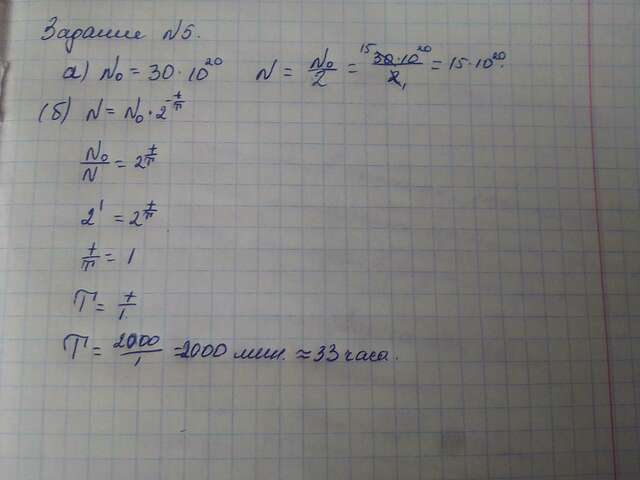 Задание №5.
а) N₀ = 30·10²⁰ N = N₀/2 = 15 30·10²⁰/2,1 = 15·10²⁰.
(б) N = N₀·2^(-t/T)
N₀/N = 2^(t/T)
2¹ = 2^(t/T)
t/T = 1
T = t/1.
T = 2000/1 = 2000 мин. ≈ 33 часа.